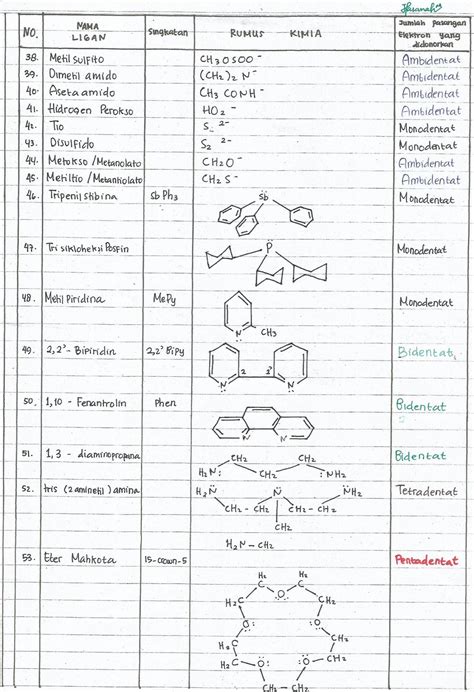 Husanah
NO. NAMA LIGAN Singkatan RUMUS KIMIA Jumlah pasangan Elektron yang didonorkan
38. Metil sulfito CH3OSOO⁻ Ambidentat
39. Dimetil amido (CH2)2 N⁻ Ambidentat
40. Aseta amido CH3 CONH⁻ Ambidentat
41. Hidrogen Perokso HO2⁻ Ambidentat
42. Tio S²⁻ Monodentat
43. Disulfido S2²⁻ Monodentat
44. Metokso /Metanolato CH2O⁻ Ambidentat
45. Metiltio /Metantiolato CH2S⁻ Ambidentat
46. Tripenilstibina Sb Ph3 Sb Monodentat
47. Tri sikloheksi Posfin P Monodentat
48. Metil Piridina MePy N CH3 Monodentat
49. 2,2'- Bipiridin 2,2' Bipy 2 2' N N Bidentat
50. 1,10 - Fenantrolin Phen N N Bidentat
51. 1,3 - diaminopropana CH2 CH2 H2N: CH2 :NH2 Bidentat
52. tris (2 aminetil) amina H2N N NH2 Tetradentat
CH2 - CH2 CH2 - CH2
CH2
H2N - CH2
53. Eter Mahkota 15-crown-5 Pentadentat
H2 H2
C C
H2C O CH2
O: :O
H2C CH2
H2C O: :O CH2
CH2 - CH2